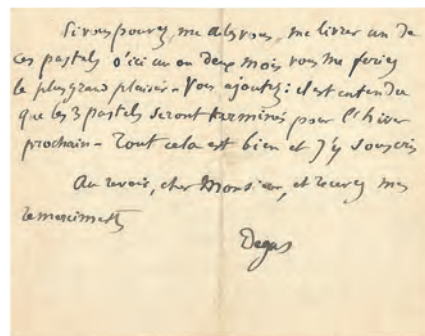 Si vous pouvez, me dites vous, me livrer un de
ces pastels d'ici un ou deux mois vous me feriez
le plus grand plaisir - Vous ajoutez: il est entendu
que les 3 pastels seront terminés pour l'hiver
prochain - Tout cela est bien et j'y souscris
Au revoir, cher Monsieur, et recevez mes
remerciments
Degas